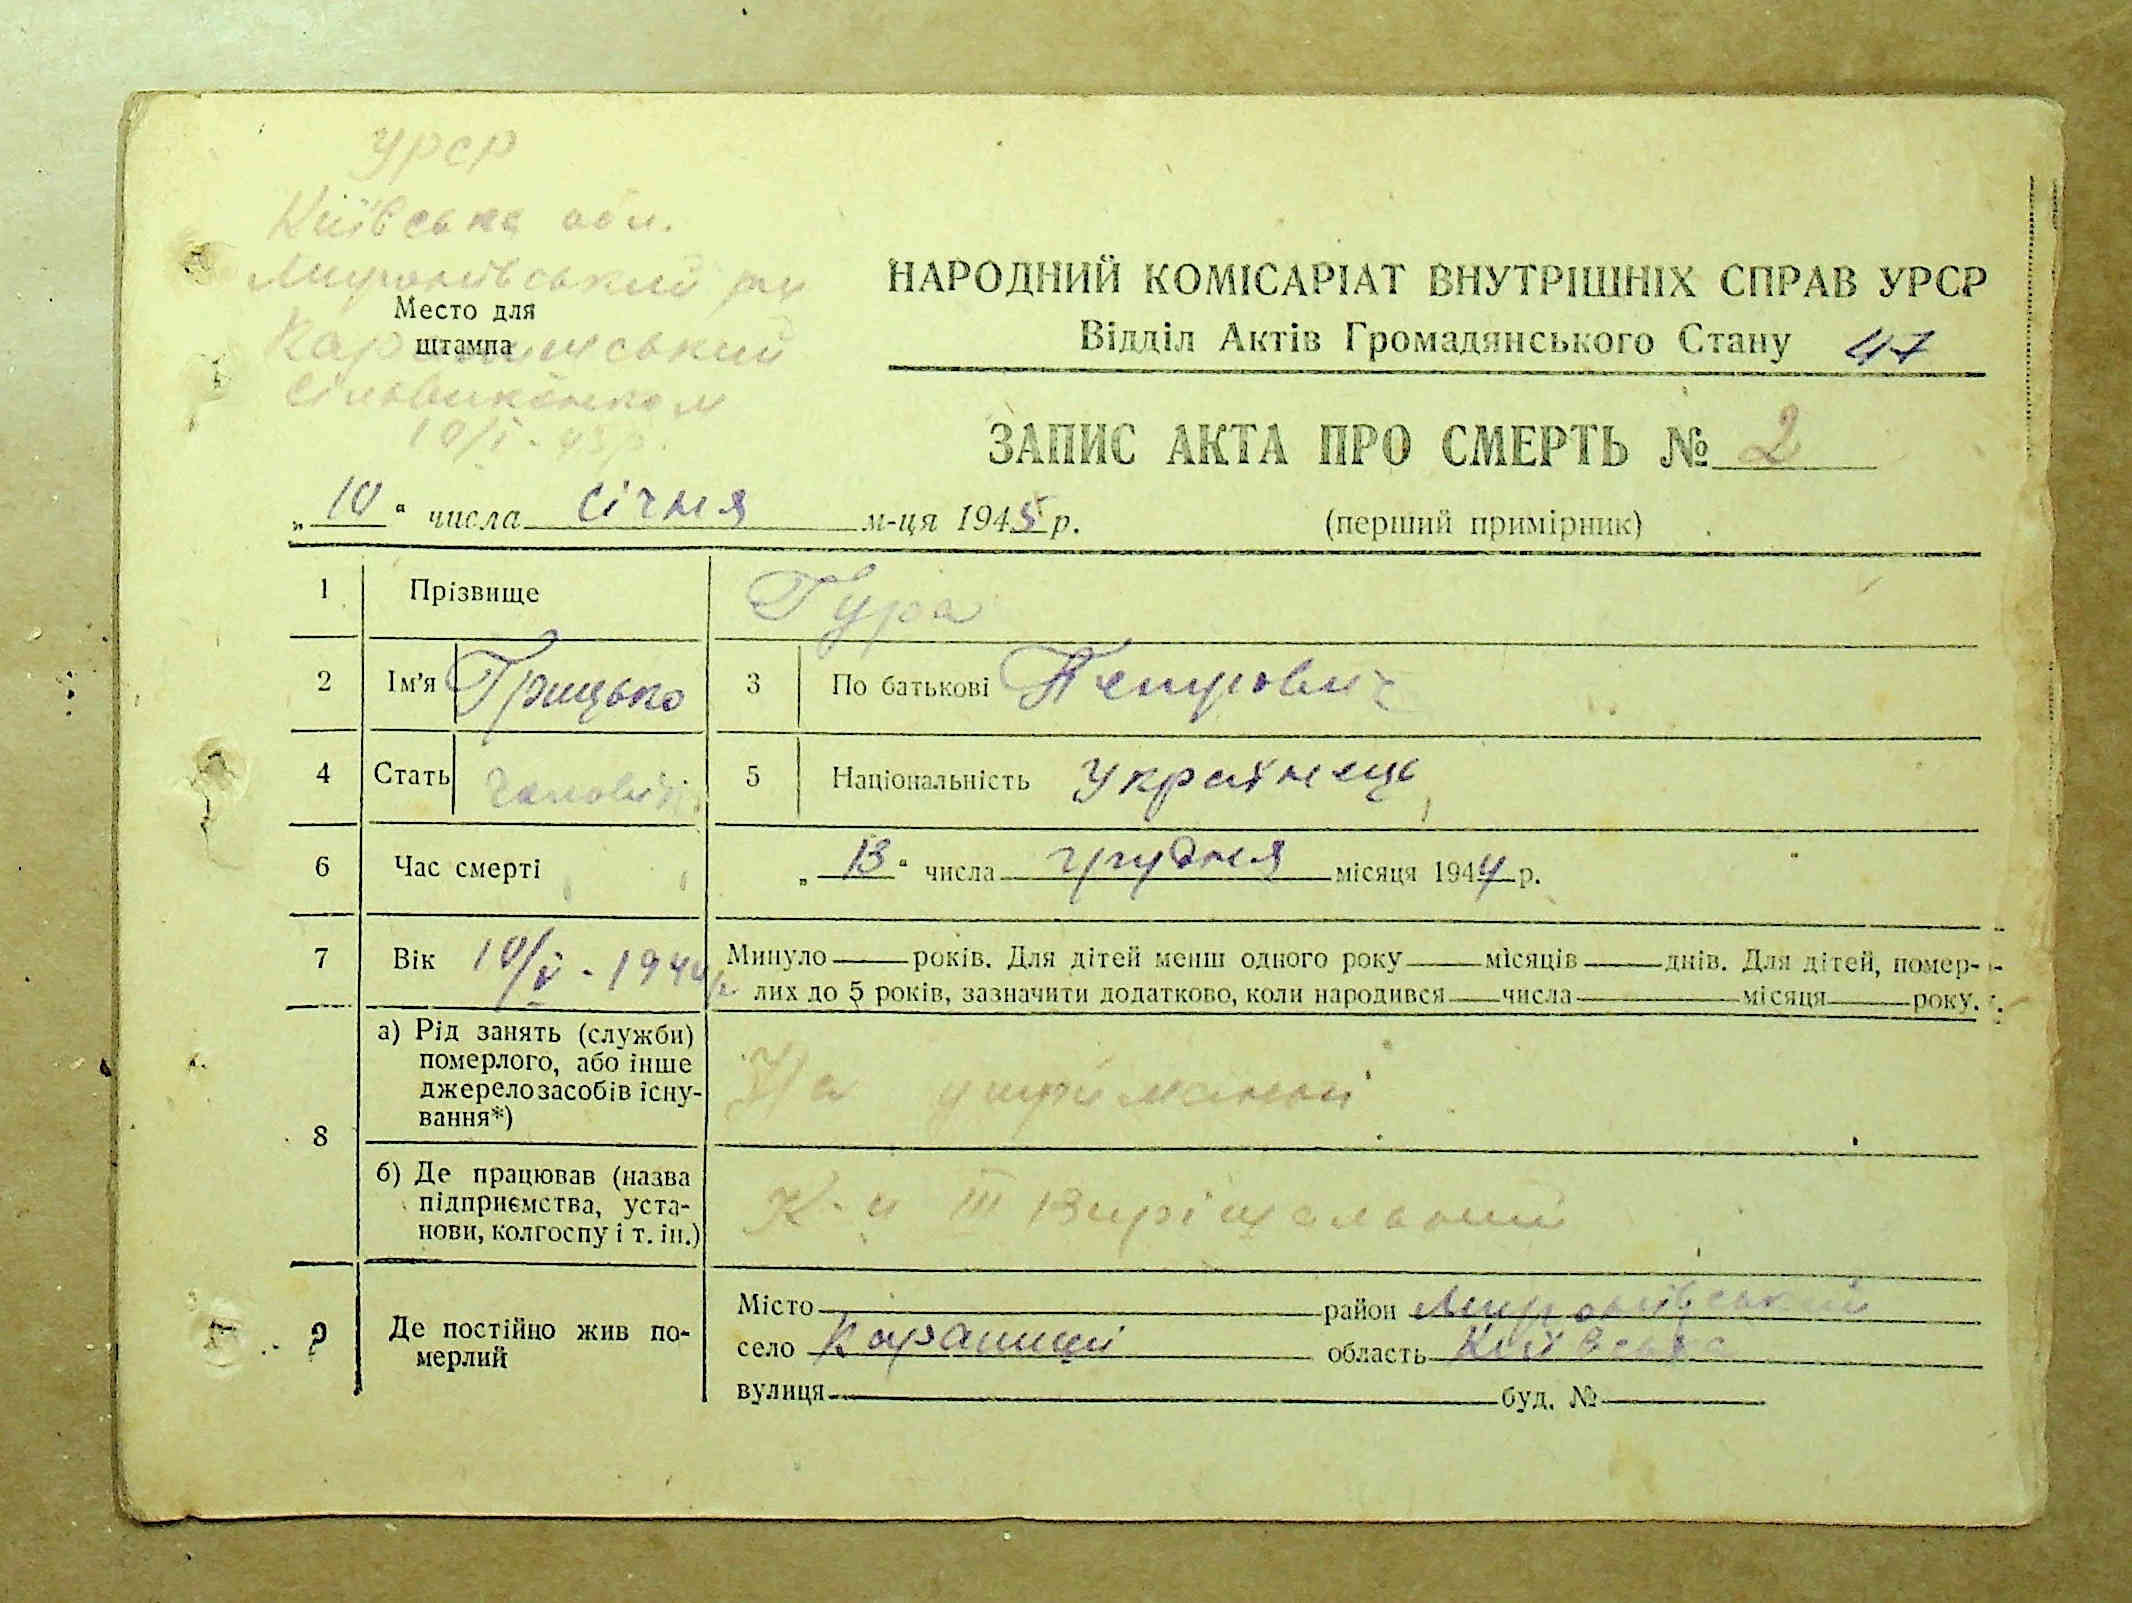 УРСР
Київська обл.
Миронівський р-н
Место для
штампа
Карапишський
сільвиконком
10/I - 45р.
НАРОДНИЙ КОМІСАРІАТ ВНУТРІШНІХ СПРАВ УРСР
Відділ Актів Громадянського Стану 47
ЗАПИС АКТА ПРО СМЕРТЬ № 2
„10“ числа січня м-ця 1945 р. (перший примірник)
1 Прізвище Гура
2 Ім'я Грицько 3 По батькові Петрович
4 Стать чоловіч. 5 Національність Українець
6 Час смерті „13“ числа грудня місяця 1944 р.
7 Вік 10/V - 1944р Минуло років. Для дітей менш одного року місяців днів. Для дітей, помер-
лих до 5 років, зазначити додатково, коли народився числа місяця року.
8 а) Рід занять (служби)
померлого, або інше
джерело засобів існу-
вання*)
На утриманні
б) Де працював (назва
підприємства, уста-
нови, колгоспу і т. ін.)
К-п III Вирішальний
9 Де постійно жив по-
мерлий
Місто район Миронівський
село Карапиші область Київська
вулиця буд. №